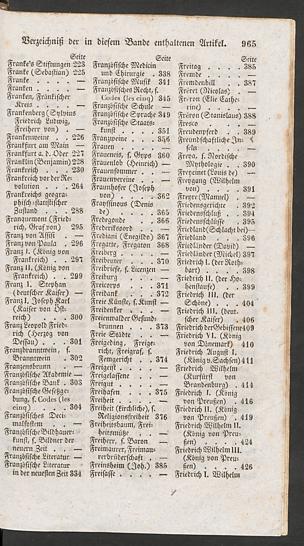 Verzeichniß der in diesem Bande enthaltenen Artikel. 965
Seite
Francke's Stiftungen 223
Francke (Sebastian) 225
Franke
Franken
Franken, Fränkischer
Kreis
Frankenberg Sylvius
Friedrich Ludwig,
Freiherr von)
Frankenweine 226
Frankfurt am Main
Frankfurt a. d. Oder 227
Franklin (Benjamin) 228
Frankreich 230
Frankreich vor der Re-
volution 264
Frankreichs geogra-
phisch-statistischer
Zustand 288
Franquemont (Fried-
rich, Graf von) 295
Franz von Assisi
Franz von Paula 296
Franz I. (König von
Frankreich) 297
Franz II. (König von
Frankreich) 299
Franz I. Stephan
(deutscher Kaiser)
Franz I. Joseph Karl
(Kaiser von Öst-
reich) 300
Franz Leopold Fried-
rich (Herzog von
Dessau) 301
Franzbranntwein, s.
Branntwein 302
Franzensbrunn
Französische Akademie
Französische Bank 303
Französische Gesetzge-
bung, s. Codes (les
cinq) 304
Französisches Deci-
malsystem
Französische Bildhauer-
kunst, s. Bildner der
neuern Zeit
Französische Literatur
Französische Literatur
in der neuesten Zeit 334
Seite
Französische Medicin
und Chirurgie 338
Französische Musik 341
Französisches Recht, s.
Codes (les cinq) 345
Französische Schule
Französische Sprache 349
Französische Staats-
kunst 351
Franzweine 356
Frauen
Fraueneis, s. Gyps 360
Frauenlob (Heinrich)
Frauensommer
Frauenvereine
Fraunhofer (Joseph
von) 362
Frayssinous (Denis
de) 365
Fredegonde 366
Frederikoord
Frediani (Enegildo) 367
Fregatte, Fregaton 368
Freiberg
Freibeuter 370
Freibriefe, s. Licenzen
Freiburg
Freicorps 371
Freidank 372
Freie Künste, s. Kunst
Freidenker
Freienwalder Gesund-
brunnen 373
Freie Städte
Freigeding, Freige-
richt, Freigraf, s.
Femgericht 374
Freigeist
Freigelassene
Freigut
Freihafen 375
Freiheit
Freiheit (kirchliche), s.
Religionsfreiheit 376
Freiheitsbaum, Frei-
heitsmütze
Freiherr, s. Baron
Freimaurer, Freimau-
rerbrüderschaft
Freinsheim (Joh.) 385
Freisasse
Seite
Freitag 385
Fremde
Fremdenbill 387
Fréret (Nicolas)
Fréron (Elie Cathe-
rine)
Fréron (Stanislaus) 388
Fresco
Freudenpferd 389
Freundschaftliche In-
seln
Freya, s. Nordische
Mythologie 390
Freycinet (Louis de)
Freygang (Wilhelm
von) 391
Freyre (Manuel)
Friedensgerichte 392
Friedensschluß 394
Friedensschlüsse 395
Friedland (Schlacht bei)
Friedland 396
Friedländer (David)
Friedländer (Michel) 397
Friedrich I. (der Roth-
bart) 398
Friedrich II. (der Ho-
henstaufe) 399
Friedrich III. (der
Schöne) 404
Friedrich III. (deut-
scher Kaiser) 406
Friedrich der Gebissene 409
Friedrich VI. (König
von Dänemark) 410
Friedrich August I.
(König v. Sachsen) 411
Friedrich Wilhelm
(Kurfürst von
Brandenburg) 414
Friedrich I. (König
von Preußen) 416
Friedrich II. (König
von Preußen) 419
Friedrich Wilhelm II.
(König von Preu-
ßen) 424
Friedrich Wilhelm III.
(König von Preu-
ßen) 426
Friedrich I. Wilhelm